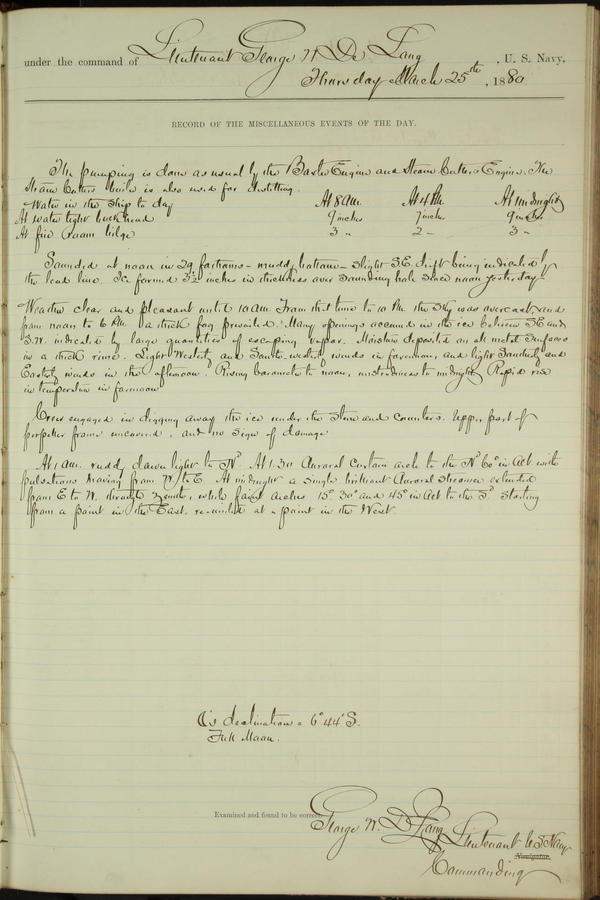 under the command of Lieutenant George W. De Long, U. S. Navy,
Thursday March 25th, 1880
RECORD OF THE MISCELLANEOUS EVENTS OF THE DAY.
The pumping is done as usual by the Baxter Engine and Steam Cutters Engine. The
Steam Cutters boiler is also used for distilling.
Water in the ship to day At 8 AM. At 4 PM. At midnight
At water tight bulkhead 9 inches 7 inches 9 inches
At fire room bilge 3 " 2 " 3 "
Sounded at noon in 29 fathoms - muddy bottom - slight SE. drift being indicated by
the lead line. Ice formed 3½ inches in thickness over sounding hole since noon yesterday.
Weather clear and pleasant until 10 AM. From that time to 10 PM. the sky was overcast, and
from noon to 6 PM. a thick fog prevailed. Many openings occurred in the ice between SE and
S.W. indicated by large quantities of escaping vapor. Moisture deposited on all metal surfaces
in a thick rime. Light Westerly and South-westerly winds in forenoon, and light Southerly and
Easterly winds in the afternoon. Rising barometer to noon, unsteadiness to midnight. Rapid rise
in temperature in forenoon
Crew engaged in digging away the ice under the stern and counters. Upper part of
propeller frame uncovered, and no sign of damage
At 1 AM. ruddy dawn light to Nd. At 1.30 Auroral curtain arch to the Nd 60° in alt. with
pulsations having from W. to E. At midnight a single brilliant Auroral streamer extended
from E to W. through zenith, while faint arches 15° 30° and 45° in alt to the Sd. starting
from a point in the East, re-united at a point in the West.
☾'s declination = 6° 44' S.
Full Moon.
Examined and found to be correct.
George W. De Long Lieutenant U.S. Navy
Navigator.
Commanding